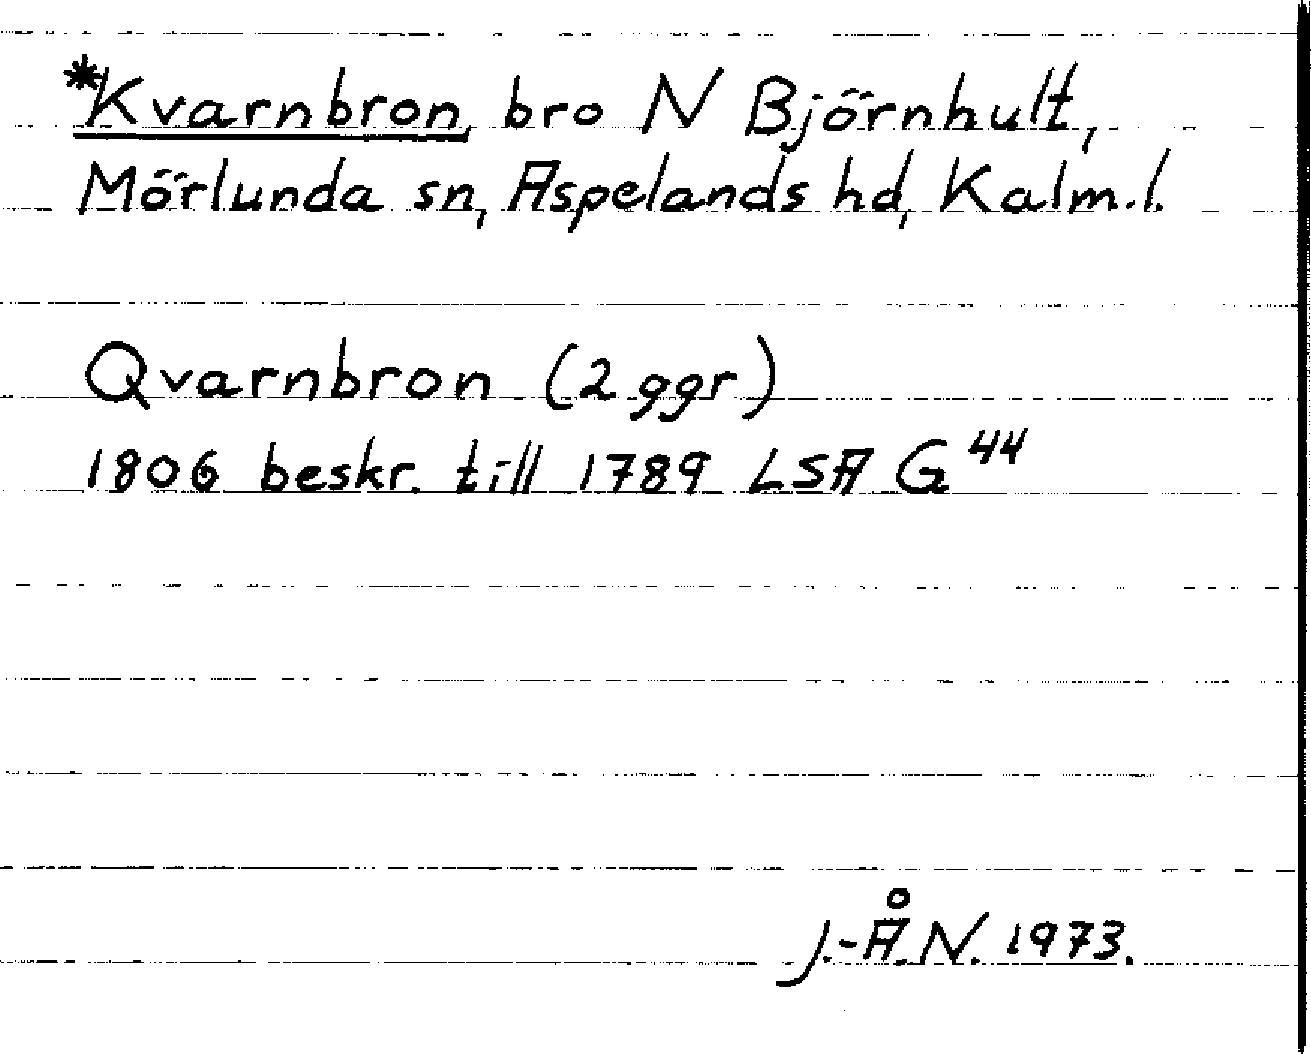 *Kvarnbron, bro N Björnhult,
Mörlunda sn, Aspelands hd, Kalm.l.
Qvarnbron (2 ggr)
1806 beskr. till 1789 LSA G 44
J.-Å.N. 1973.